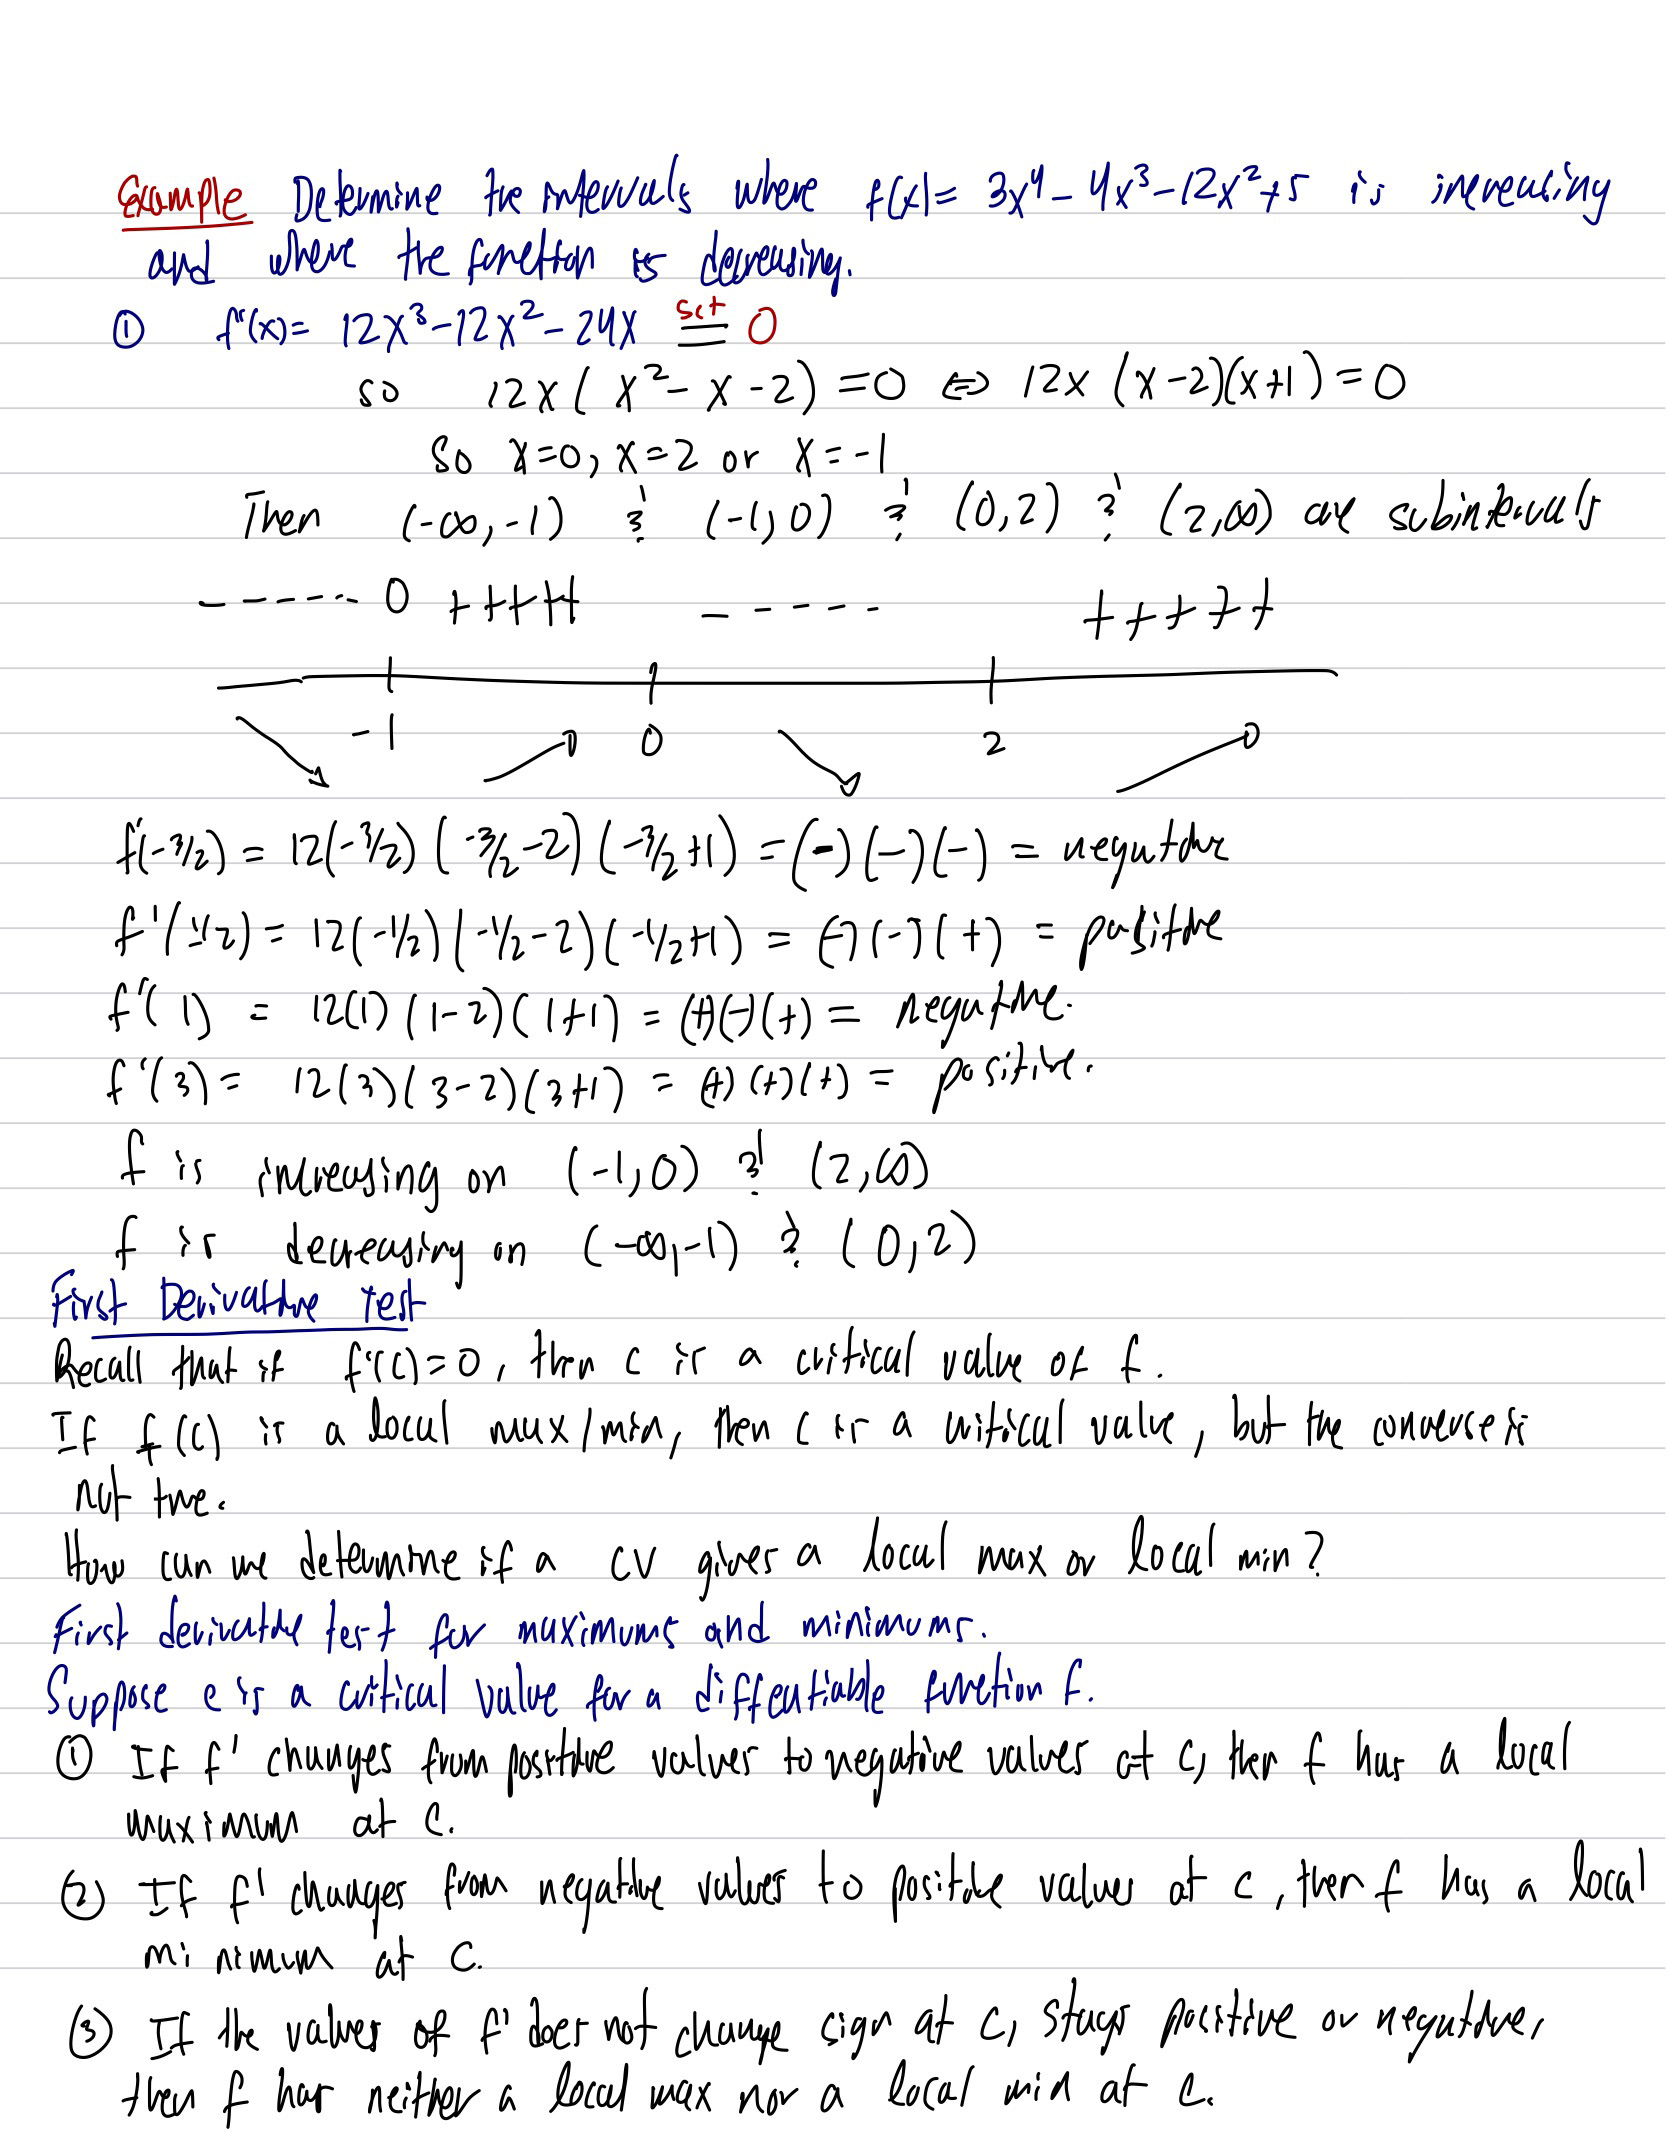 Example Determine the intervals where f(x)= 3x⁴-4x³-12x²+5 is increasing
and where the function is decreasing.
① f'(x)= 12x³-12x²-24x set = 0
so 12x(x²-x-2)=0 ⇔ 12x(x-2)(x+1)=0
So x=0, x=2 or x=-1
Then (-∞,-1) & (-1,0) & (0,2) & (2,∞) are subintervals
------- 0 +++++ ----- +++++
-1 0 2
f'(-3/2) = 12(-3/2)(-3/2-2)(-3/2+1) = (-)(-)(-) = negative
f'(-1/2) = 12(-1/2)(-1/2-2)(-1/2+1) = (-)(-)(+) = positive
f'(1) = 12(1)(1-2)(1+1) = (+)(-)(+) = negative.
f'(3) = 12(3)(3-2)(3+1) = (+)(+)(+) = positive.
f is increasing on (-1,0) & (2,∞)
f is decreasing on (-∞,-1) & (0,2)
First Derivative Test
Recall that if f'(c)=0, then c is a critical value of f.
If f(c) is a local max/min, then c is a critical value, but the converse is
not true.
How can we determine if a cv gives a local max or local min?
First derivative test for maximums and minimums.
Suppose c is a critical value for a diffentiable function f.
① If f' changes from positive values to negative values at c, then f has a local
maximum at c.
② If f' changes from negative values to positive values at c, then f has a local
minimum at c.
③ If the values of f' does not change sign at c, stays positive or negative,
then f has neither a local max nor a local min at c.